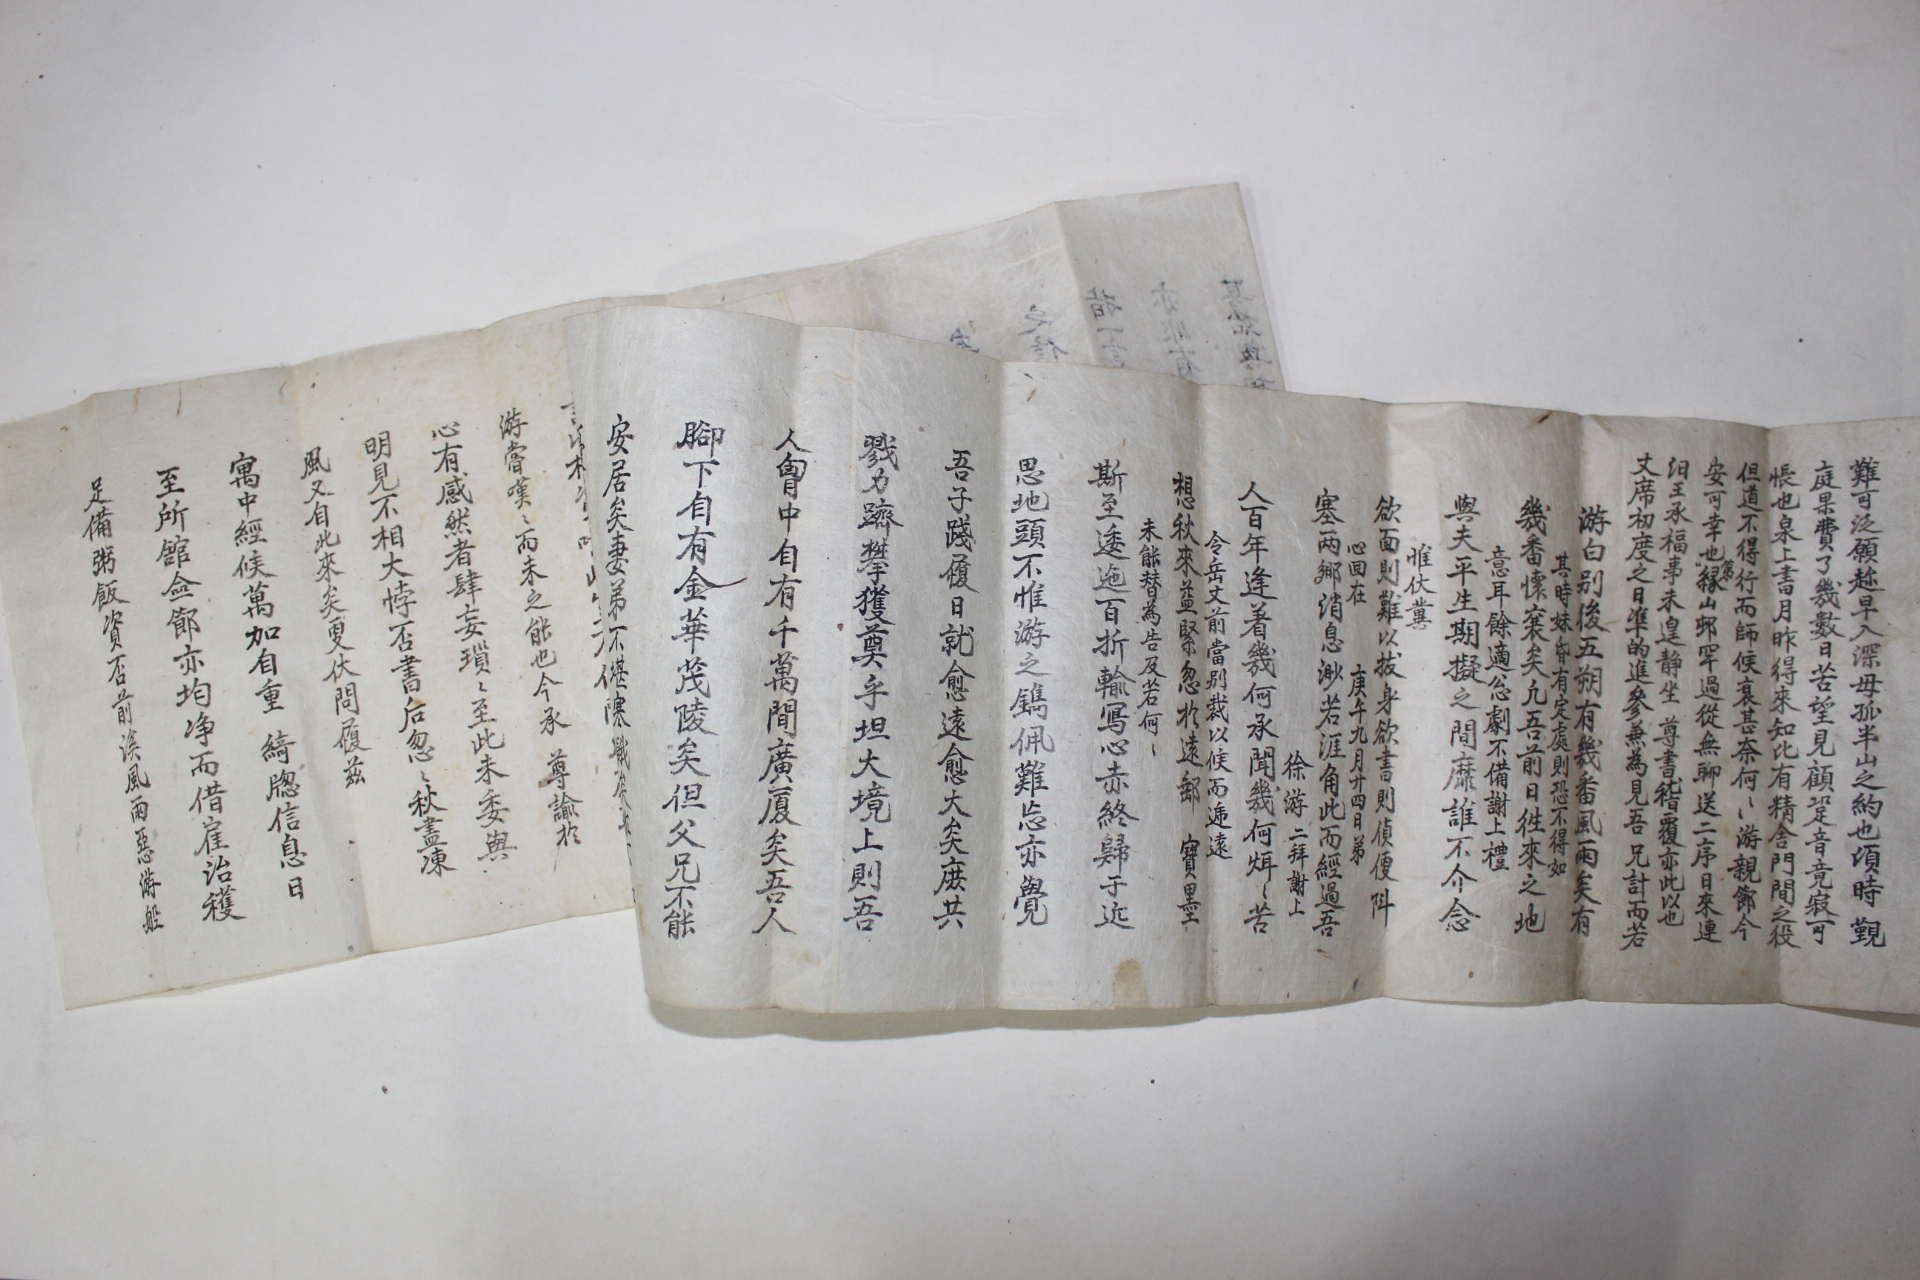 難可泛願趂早入深毋孤半山之約也頃時 覲
庭果費了幾數日苦望見顧跫音竟寂可
悵也泉上書月昨得來知比有精舍門閭之役
但道不得行而師候衰甚奈何〻游親節今
安可幸也緣山邨罕過從無聊送二序日來連
汨王承福事未遑静坐 尊書稽覆亦此以也
丈席初度之日準的進參兼為見吾 兄計而若
游白别後五朔有幾番風雨矣有
其時妹昏有定處則恐不得如
幾番懷褱矣允吾前日徃來之地
意耳餘適怱劇不備謝上禮
與夫平生期擬之間靡誰不介念
惟伏兾
欲面則難以拔身欲書則偵便阧
心回在 庚午九月廿四日弟
塞两鄉消息渺若涯角此而經過吾
徐游 二拜謝上
人百年逢着幾何承聞幾何烦〻苦
令岳丈前當别裁以候而遞遠
想秋來益緊忽於遠郵 寶墨
未能替為告及若何〻
斯至逶迤百折輸寫心赤終歸于近
思地頭不惟游之鐫佩難忘亦覺
吾子踐履日就愈遠愈大矣庶共
戮力躋攀獲奠乎坦大境上則吾
人胷中自有千萬間廣厦矣吾人
脚下自有金華茂陵矣但父兄不能
安居矣妻弟不堪
游嘗嘆〻而未之能也今承 尊諭於
心有感然者肆妄瑣〻至此未委與
明見不相大悖否書后忽〻秋盡凍
風又自此來矣更伏問履兹
寓中經候萬加自重 綺牕信息日
至所館僉節亦均净而借雇治穫
足備粥飯資否前溪風雨惡游般